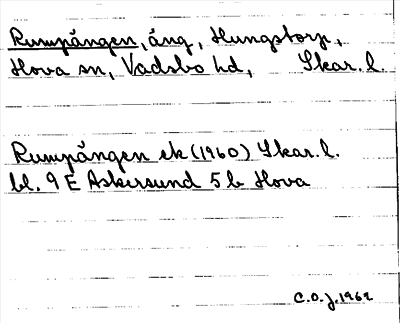 Rumpängen, äng, Hungstorp,
Hova sn, Vadsbo hd, Skar. l.
Rumpängen ek (1960) Skar. l.
bl. 9 E Askersund 5 b Hova
C.O.J. 1962